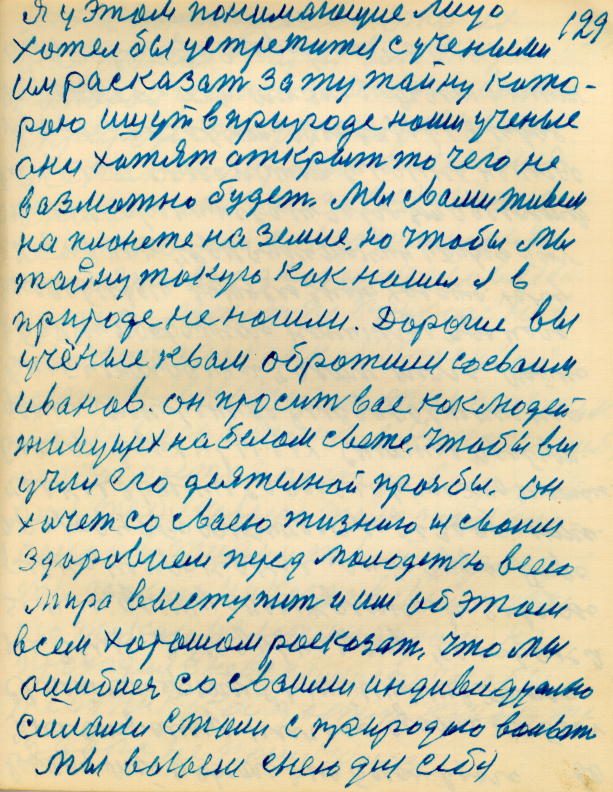 я у этом понимающие лицо
129
хотел бы устретится с учеными
им расказат за ту тайну кото-
рою ищут в природе наши ученые
они хотят открыт то чего не
возможно будет. Мы свами живем
на планете на земле. но чтобы мы
тайну такую как нашел я в
природе не нашли. Дорогие вы
учёные квам обротился сосваим
иванов. он просит вас как людей
живущих на белом свете. чтобы вы
учли его деятелной прозбы. он
хочет со сваею жизнию и сваим
здоровием перед молодежю всего
мира выступит и им об этом
всем хорошом росказат. что мы
ошиблис со сваими индивидуално
силами стали с природою воеват
Мы воюем снею для себя